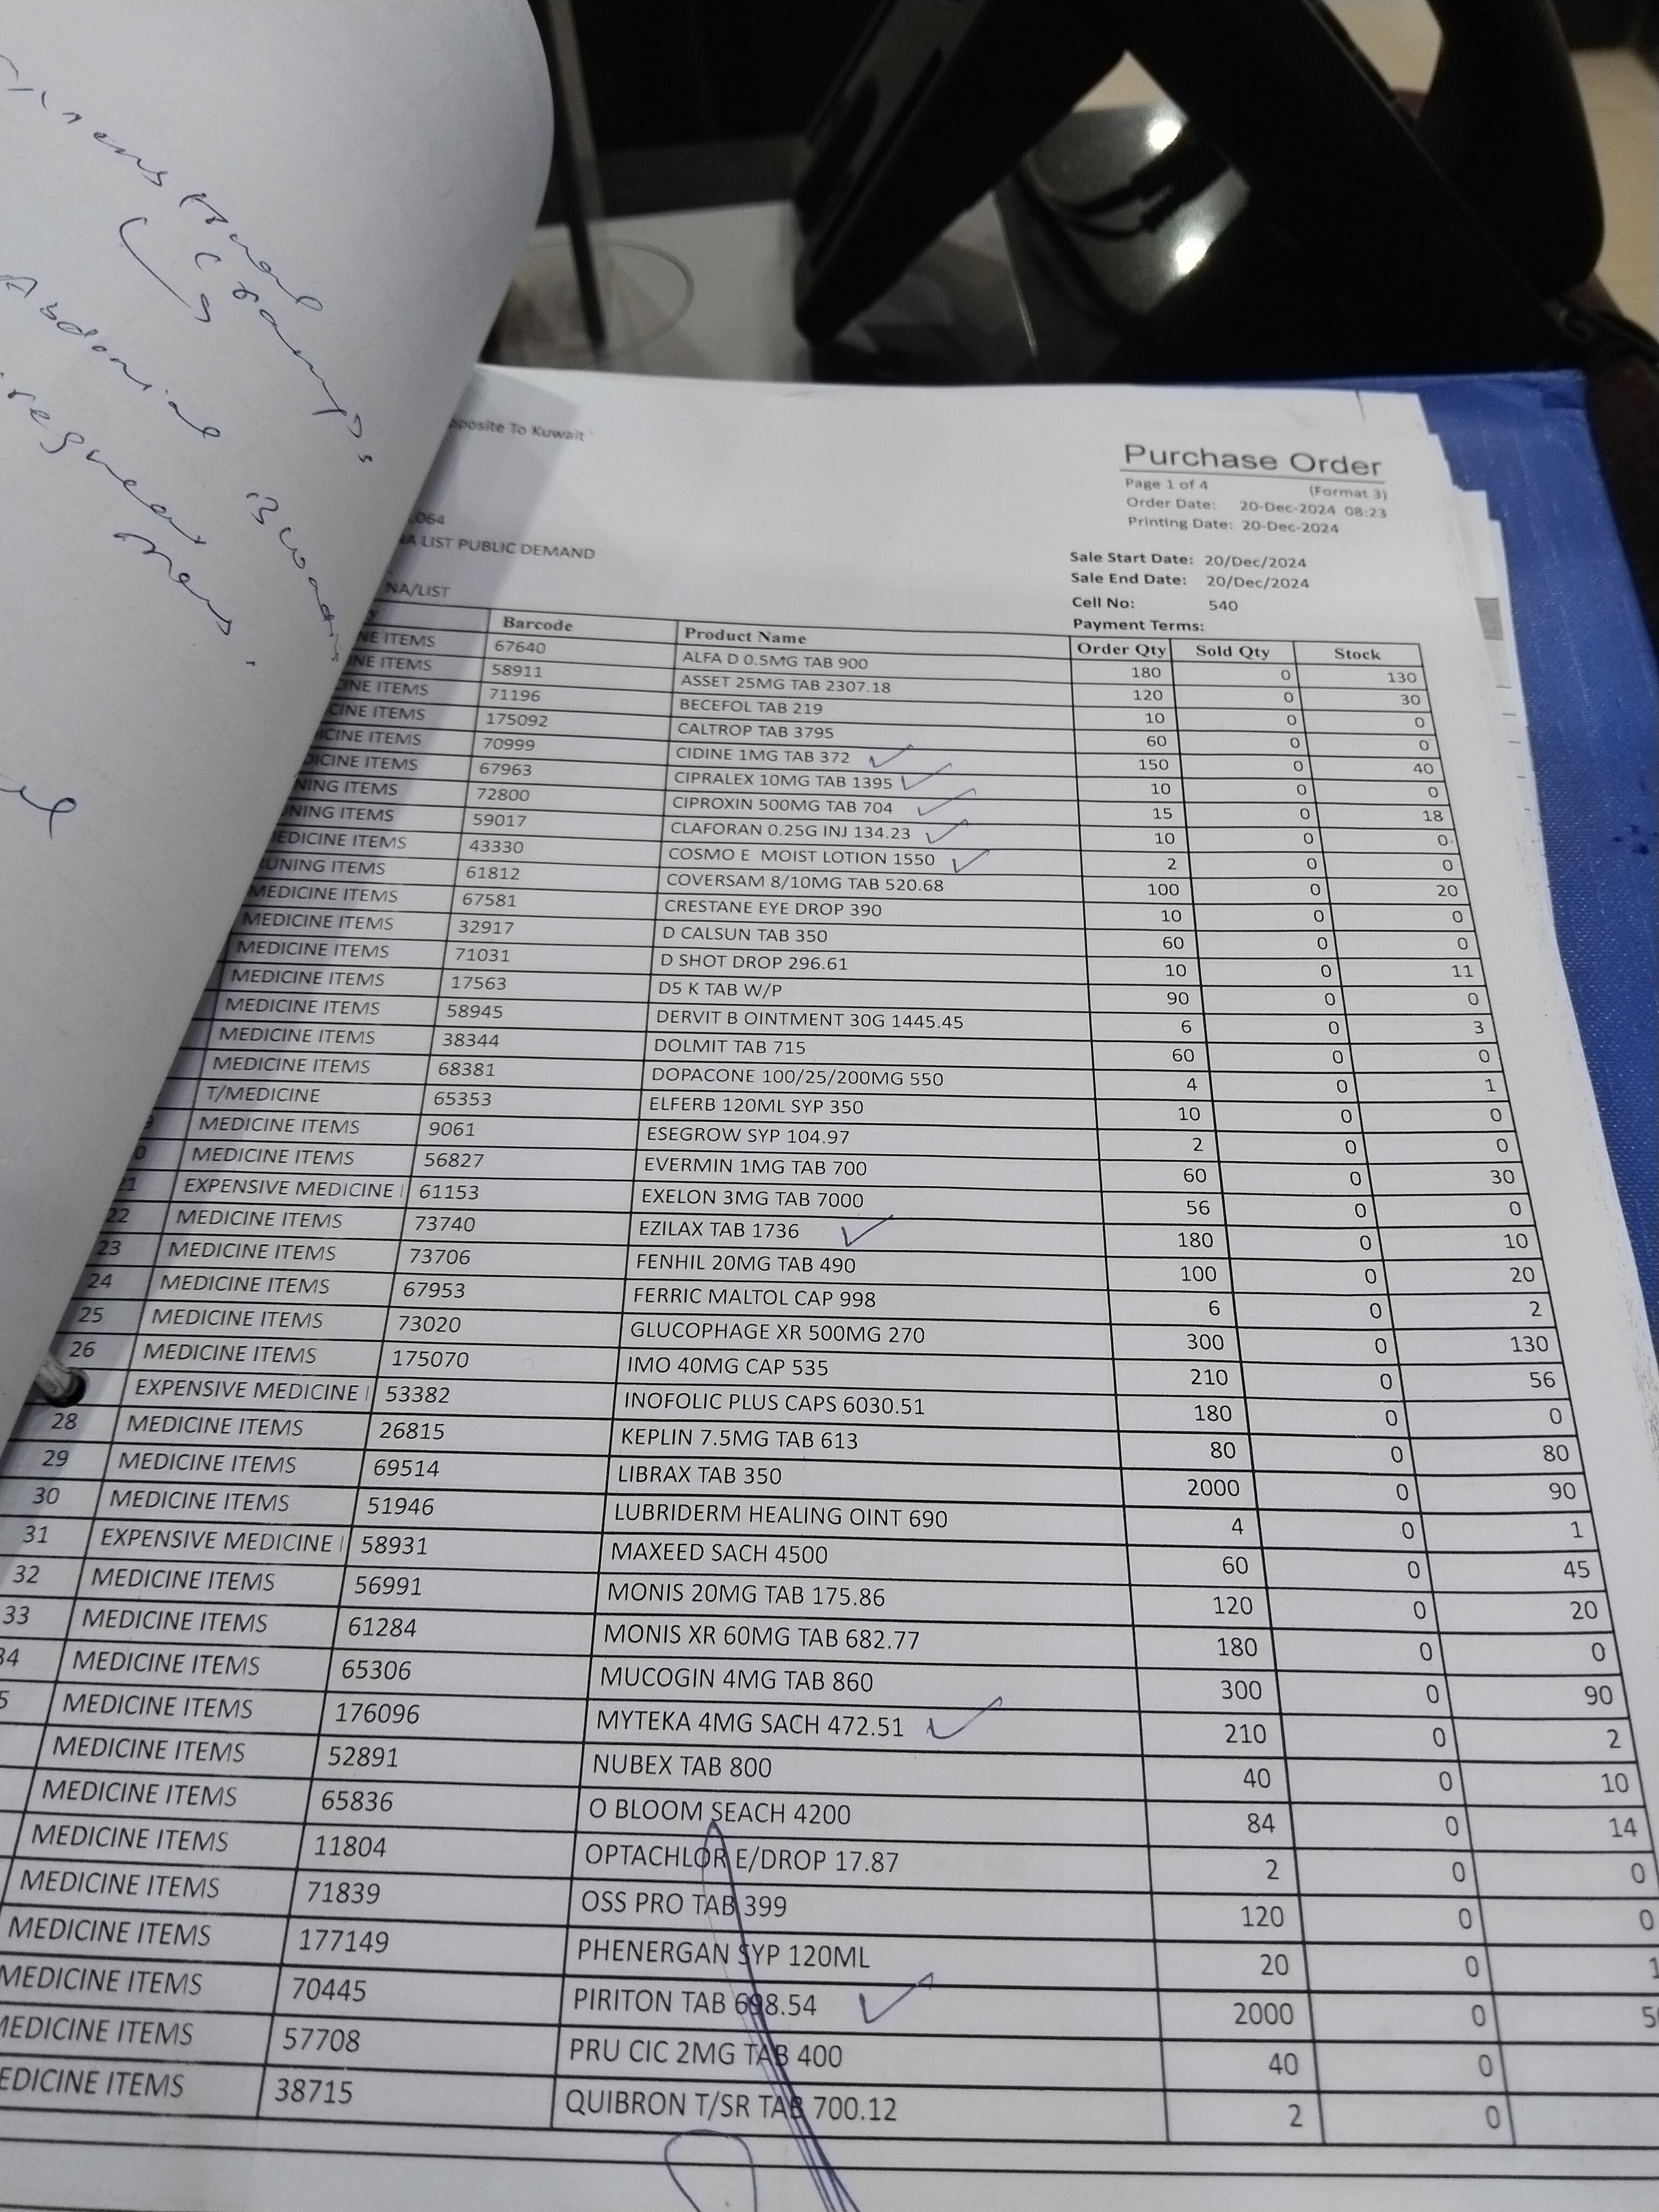 Cramps
Abdominal
opposite To Kuwait
Purchase Order
Page 1 of 4 (Format 3)
Order Date: 20-Dec-2024 08:23
Printing Date: 20-Dec-2024
,064
NA LIST PUBLIC DEMAND
Sale Start Date: 20/Dec/2024
Sale End Date: 20/Dec/2024
NA/LIST
Cell No: 540
Payment Terms:
Barcode Product Name Order Qty Sold Qty Stock
NE ITEMS 67640 ALFA D 0.5MG TAB 900 180 0 130
NE ITEMS 58911 ASSET 25MG TAB 2307.18 120 0 30
CINE ITEMS 71196 BECEFOL TAB 219 10 0 0
CINE ITEMS 175092 CALTROP TAB 3795 60 0 0
ICINE ITEMS 70999 CIDINE 1MG TAB 372 ✓ 150 0 40
DICINE ITEMS 67963 CIPRALEX 10MG TAB 1395 ✓ 10 0 0
NING ITEMS 72800 CIPROXIN 500MG TAB 704 ✓ 15 0 18
NING ITEMS 59017 CLAFORAN 0.25G INJ 134.23 ✓ 10 0 0
EDICINE ITEMS 43330 COSMO E MOIST LOTION 1550 ✓ 2 0 0
UNING ITEMS 61812 COVERSAM 8/10MG TAB 520.68 100 0 20
MEDICINE ITEMS 67581 CRESTANE EYE DROP 390 10 0 0
MEDICINE ITEMS 32917 D CALSUN TAB 350 60 0 0
MEDICINE ITEMS 71031 D SHOT DROP 296.61 10 0 11
MEDICINE ITEMS 17563 D5 K TAB W/P 90 0 0
MEDICINE ITEMS 58945 DERVIT B OINTMENT 30G 1445.45 6 0 3
MEDICINE ITEMS 38344 DOLMIT TAB 715 60 0 0
MEDICINE ITEMS 68381 DOPACONE 100/25/200MG 550 4 0 1
T/MEDICINE 65353 ELFERB 120ML SYP 350 10 0 0
9 MEDICINE ITEMS 9061 ESEGROW SYP 104.97 2 0 0
0 MEDICINE ITEMS 56827 EVERMIN 1MG TAB 700 60 0 30
21 EXPENSIVE MEDICINE I 61153 EXELON 3MG TAB 7000 56 0 0
22 MEDICINE ITEMS 73740 EZILAX TAB 1736 ✓ 180 0 10
23 MEDICINE ITEMS 73706 FENHIL 20MG TAB 490 100 0 20
24 MEDICINE ITEMS 67953 FERRIC MALTOL CAP 998 6 0 2
25 MEDICINE ITEMS 73020 GLUCOPHAGE XR 500MG 270 300 0 130
26 MEDICINE ITEMS 175070 IMO 40MG CAP 535 210 0 56
EXPENSIVE MEDICINE I 53382 INOFOLIC PLUS CAPS 6030.51 180 0 0
28 MEDICINE ITEMS 26815 KEPLIN 7.5MG TAB 613 80 0 80
29 MEDICINE ITEMS 69514 LIBRAX TAB 350 2000 0 90
30 MEDICINE ITEMS 51946 LUBRIDERM HEALING OINT 690 4 0 1
31 EXPENSIVE MEDICINE I 58931 MAXEED SACH 4500 60 0 45
32 MEDICINE ITEMS 56991 MONIS 20MG TAB 175.86 120 0 20
33 MEDICINE ITEMS 61284 MONIS XR 60MG TAB 682.77 180 0 0
34 MEDICINE ITEMS 65306 MUCOGIN 4MG TAB 860 300 0 90
5 MEDICINE ITEMS 176096 MYTEKA 4MG SACH 472.51 ✓ 210 0 2
MEDICINE ITEMS 52891 NUBEX TAB 800 40 0 10
MEDICINE ITEMS 65836 O BLOOM SEACH 4200 84 0 14
MEDICINE ITEMS 11804 OPTACHLOR E/DROP 17.87 2 0 0
MEDICINE ITEMS 71839 OSS PRO TAB 399 120 0 0
MEDICINE ITEMS 177149 PHENERGAN SYP 120ML 20 0 1
MEDICINE ITEMS 70445 PIRITON TAB 698.54 ✓ 2000 0 5
MEDICINE ITEMS 57708 PRU CIC 2MG TAB 400 40 0
EDICINE ITEMS 38715 QUIBRON T/SR TAB 700.12 2 0